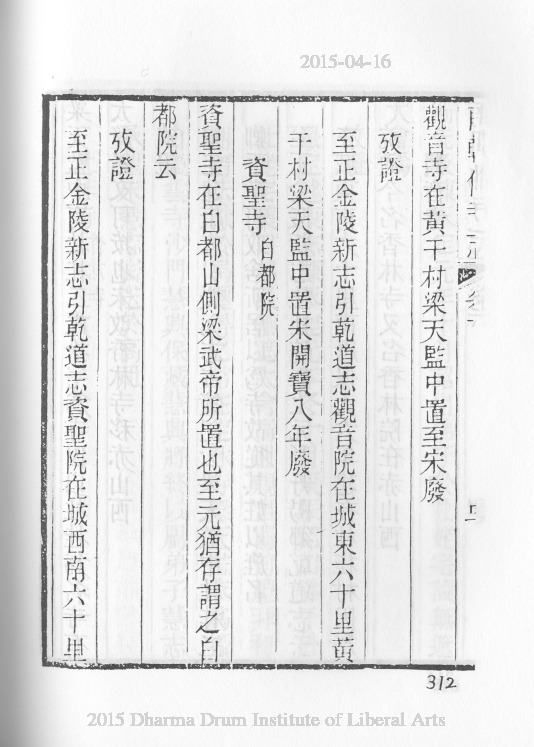 2015-04-16
觀音寺在黃干村梁天監中置至宋廢
攷證
至正金陵新志引乾道志觀音院在城東六十里黃
干村梁天監中置宋開寶八年廢
資聖寺 白都院
資聖寺在白都山側梁武帝所置也至元猶存謂之白
都院云
攷證
至正金陵新志引乾道志資聖院在城西南六十里
312
2015 Dharma Drum Institute of Liberal Arts